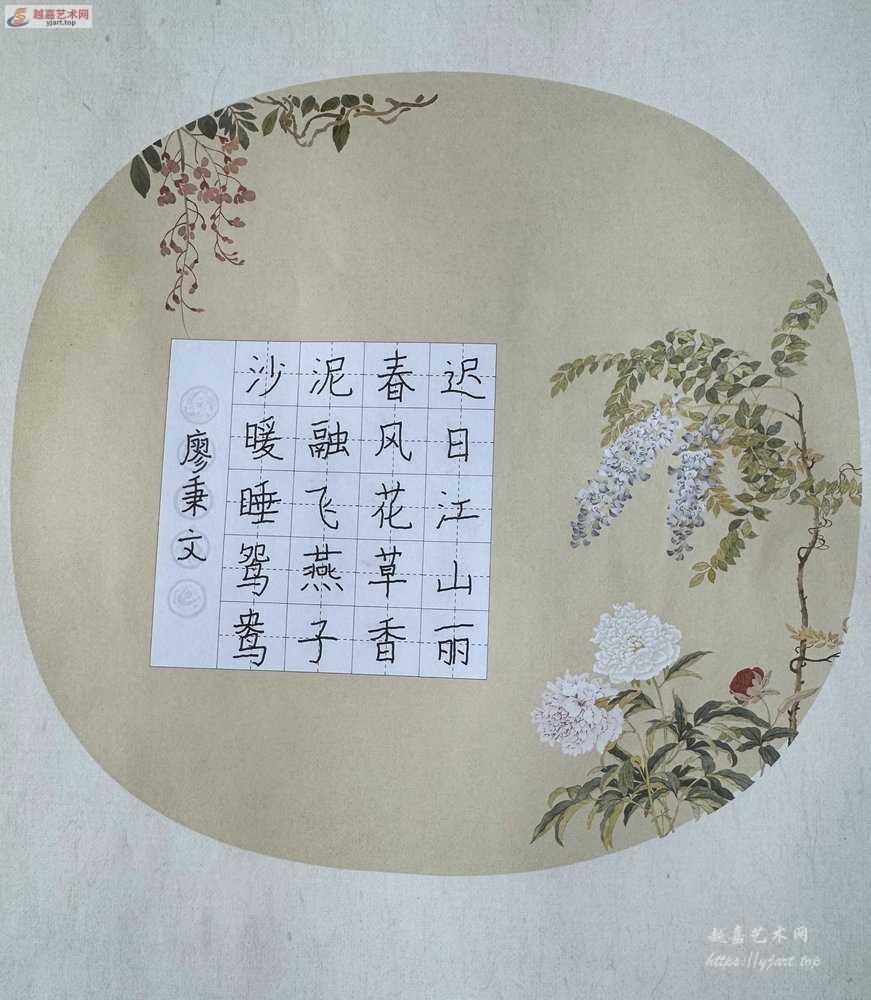 越嘉艺术网
yjart.top
迟日江山丽
春风花草香
泥融飞燕子
沙暖睡鸳鸯
廖秉文
越嘉艺术网
https://yjart.top